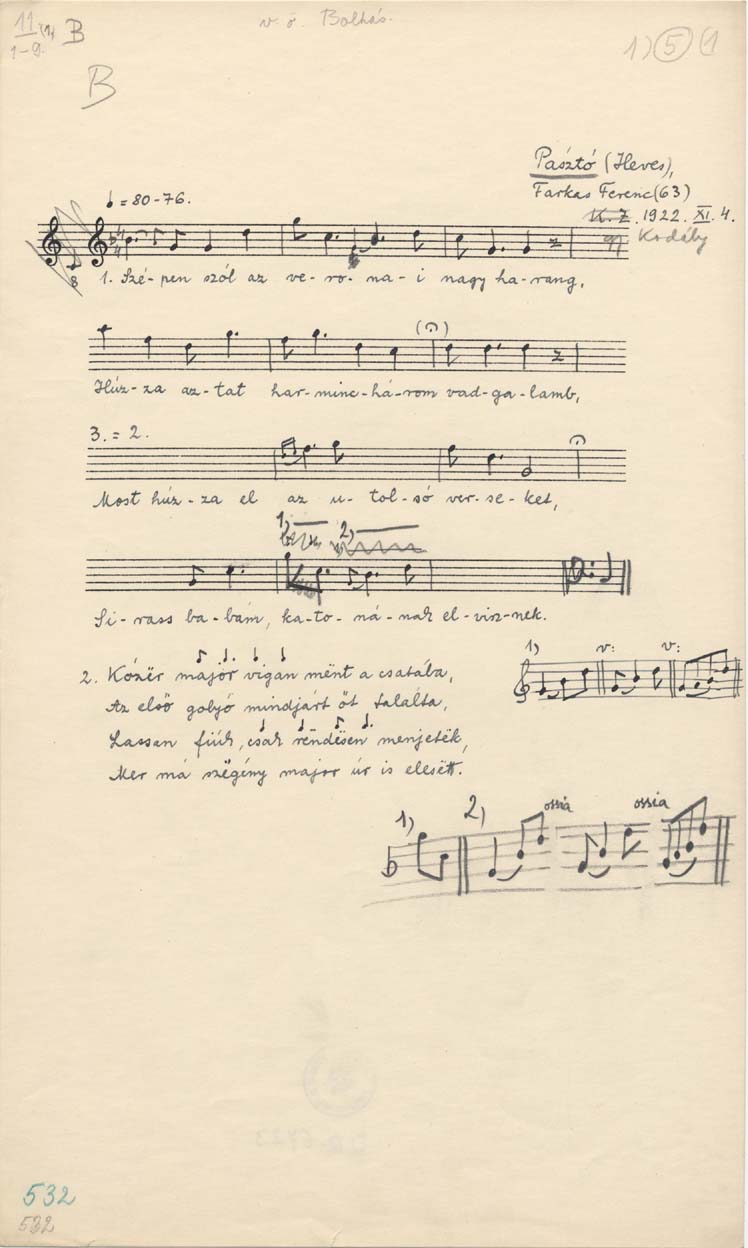 11 (1) B
1-9.
v. ö. Bolhás.
1) 5 (1
B
Pásztó (Heves),
Farkas Ferenc (63)
K. Z. 1922. XI. 4.
Kodály
= 80-76.
8
1. Szé-pen szól az ve-ro-na-i nagy ha-rang,
Húz-za az-tat har-minc-há-rom vad-ga-lamb,
3. = 2.
Most húz-za el az u-tol-só ver-se-ket,
1) 2)
Si-rass ba-bám, ka-to-ná-nak el-visz-nek.
1) v: v:
2. Kózër major vigan mënt a csatába,
Az első golyó mindjárt őt találta,
Lassan fiúk, csak rëndësen menjetëk,
Mer má szëgény major úr is elesëtt.
1) 2) ossia ossia
532
532